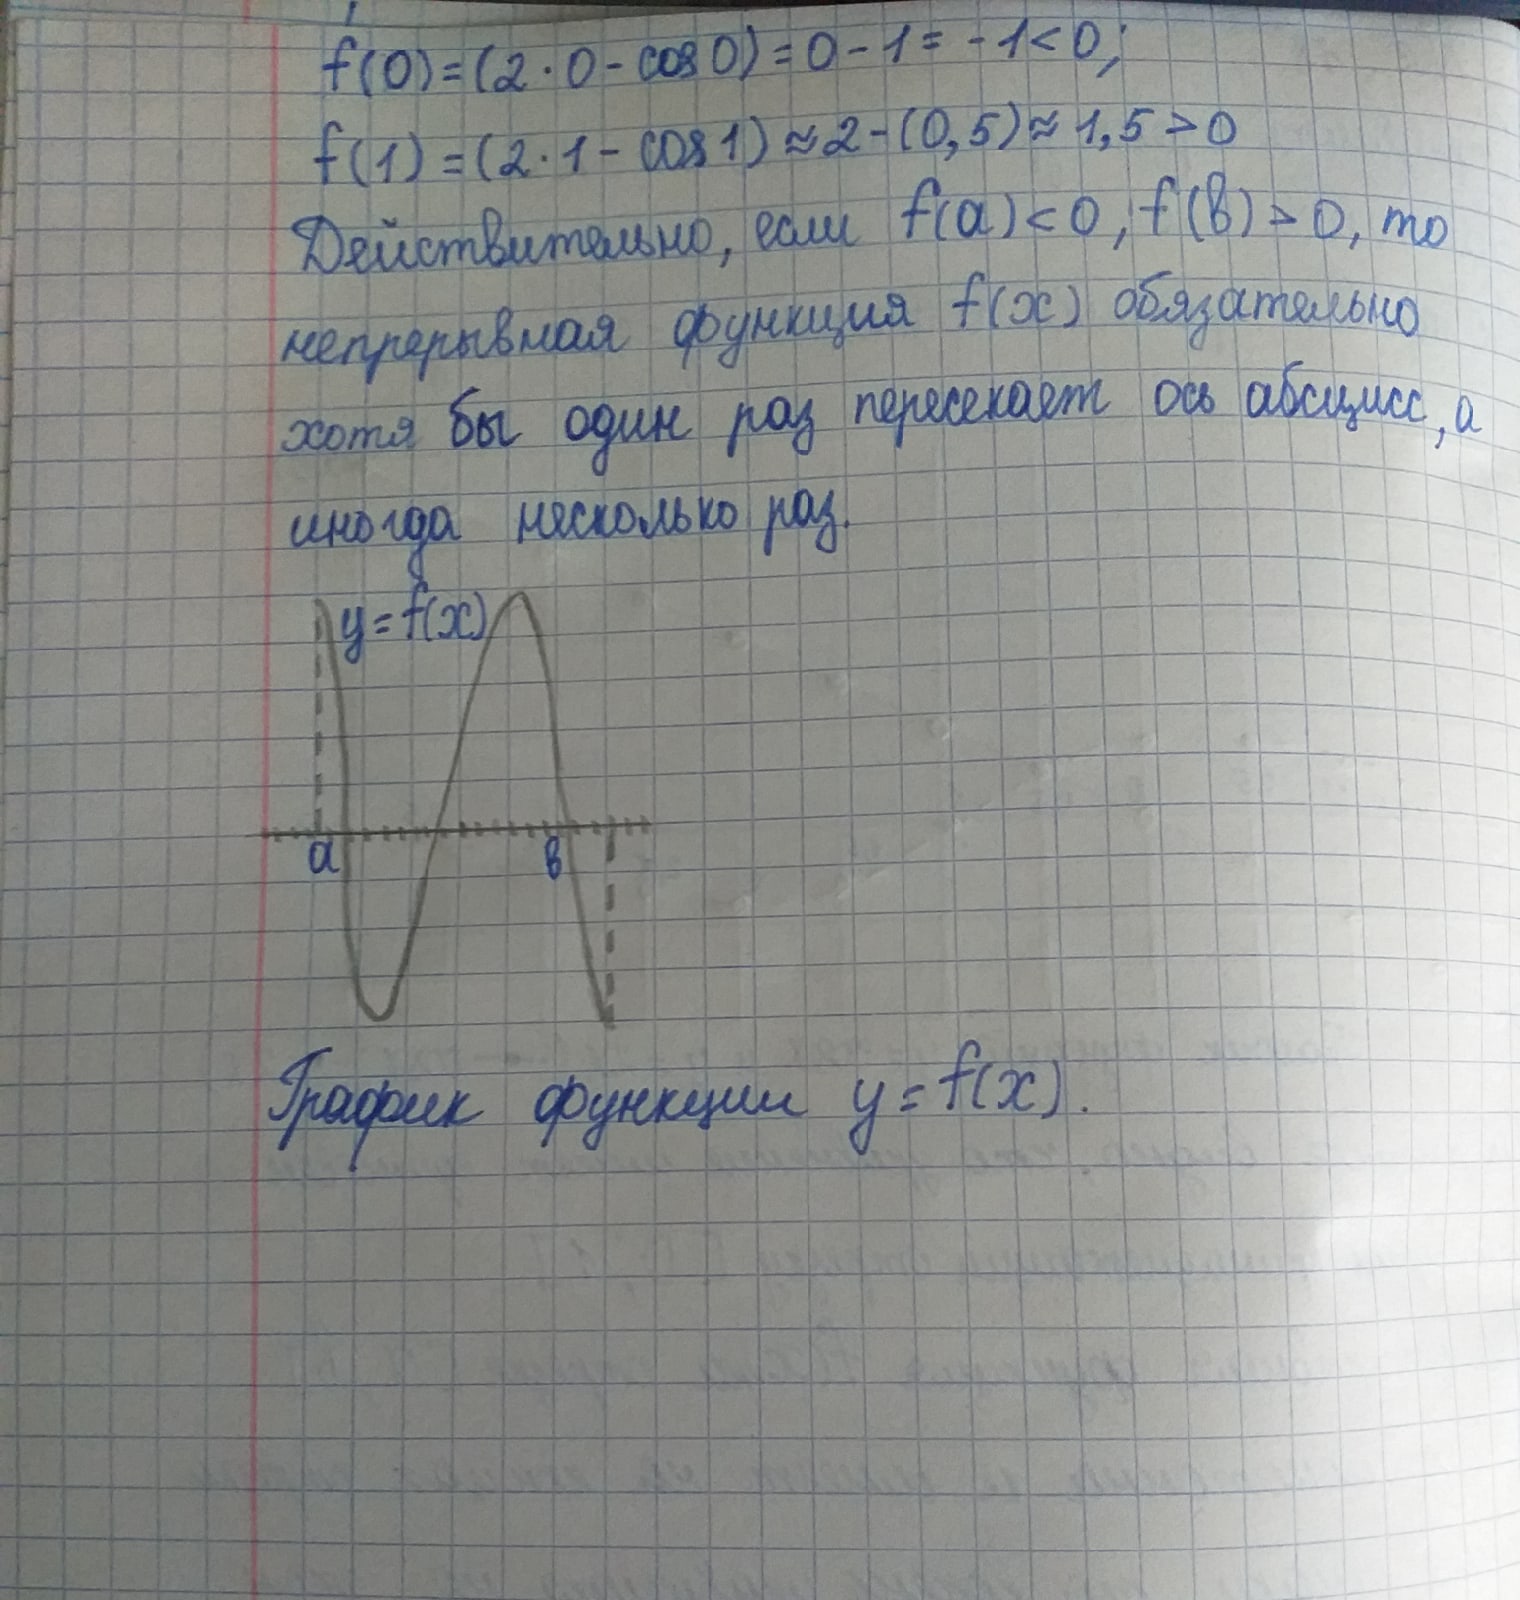 f(0)=(2·0-cos0)=0-1=-1<0;
f(1)=(2·1-cos1)≈2-(0,5)≈1,5>0
Действительно, если f(a)<0, f(в)>0, то
непрерывная функция f(x) обязательно
хотя бы один раз пересекает ось абсцисс, а
иногда несколько раз.
y=f(x)
a в
График функции y=f(x).